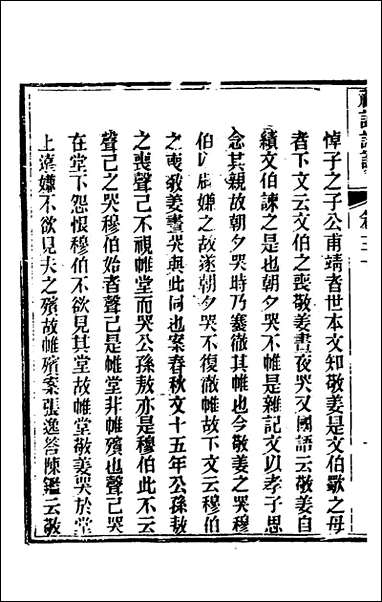 悼子之子公甫靖者世本文知敬姜是文伯歜之母
者下文云文伯之喪敬姜晝夜哭又國語云敬姜自
績文伯諫之是也朝夕哭不帷是雜記文以孝子思
念其親故朝夕哭時乃褰徹其帷也今敬姜之哭穆
伯以避嫌之故遂朝夕哭不復徹帷故下文云穆伯
之喪敬姜晝哭與此同也案春秋文十五年公孫敖
之喪聲己不視帷堂而哭公孫敖亦是穆伯此不云
聲己之哭穆伯始者聲己是帷堂非帷殯也聲己哭
在堂下怨恨穆伯不欲見其堂故帷堂敬姜哭於堂
上遠嫌不欲見夫之殯故帷殯案張逸答陳鑑云敬